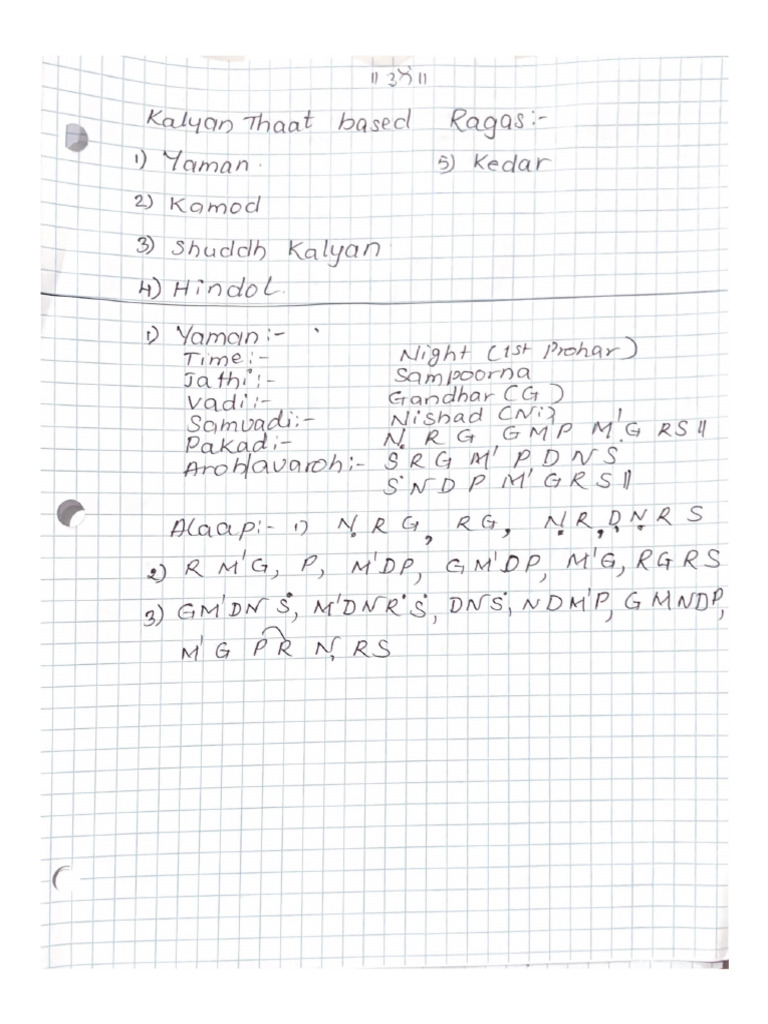 ॥ ॐ ॥
Kalyan Thaat based Ragas:-
1) Yaman. 5) Kedar
2) Kamod
3) Shuddh Kalyan
4) Hindol.
1) Yaman:-
Time:- Night (1st Prohar)
Jathi:- Sampoorna
Vadi:- Gandhar (G)
Samvadi:- Nishad (Ni)
Pakad:- Ṇ R G G M P M' G R S ||
Aroh/avaroh:- S R G M' P D N S
Ṡ N D P M' G R S ||
Alaap:- 1) Ṇ R G, R G, Ṇ R, Ḍ Ṇ R S
2) R M'G, P, M'DP, G M'DP, M'G, R G R S
3) G M'D N Ṡ, M'D N Ṙ Ṡ, D N Ṡ, N D M'P, G M N D P,
M' G P R Ṇ, R S